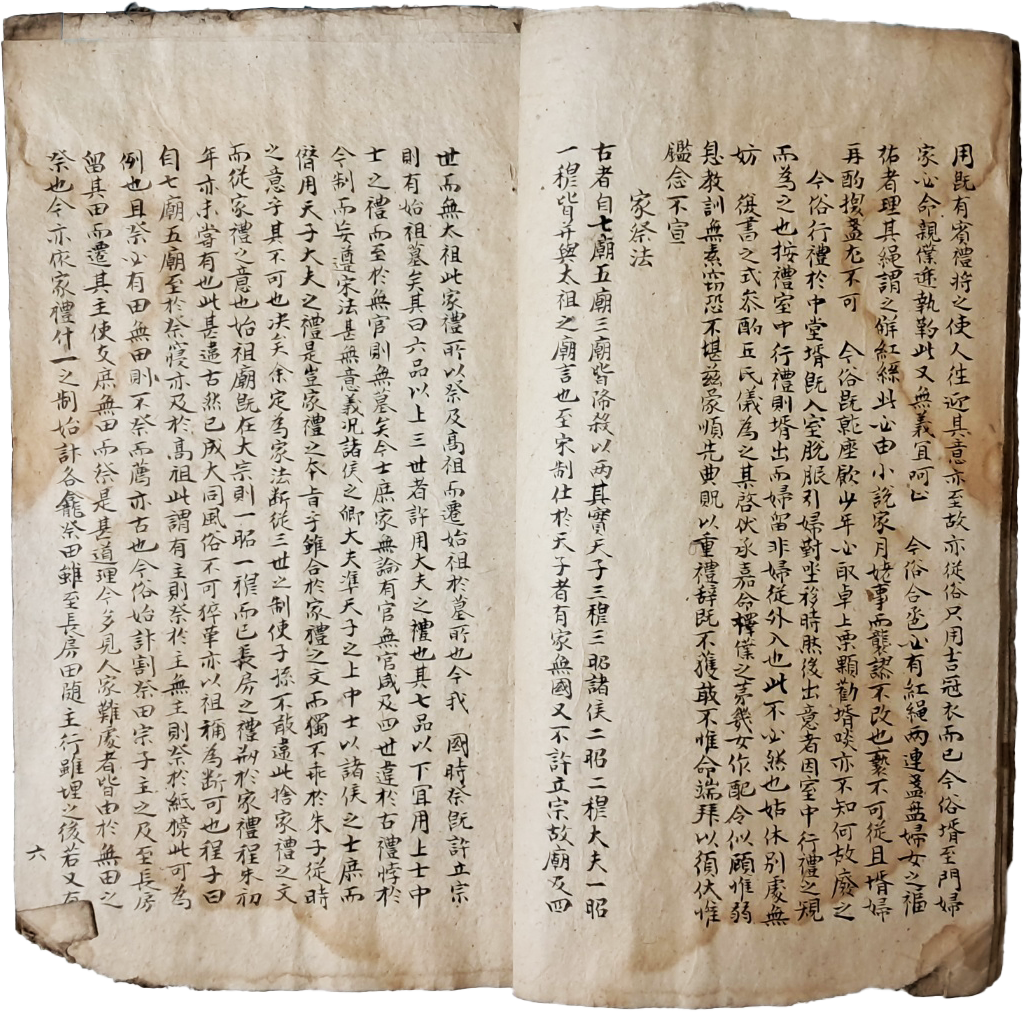 用旣有賓禮將之使人徃迎其意亦至故亦從俗只用吉冠衣而已 今俗壻至門婦
家必命親僕逆執靮此又無義宜呵止 今俗合巹必有紅繩兩連盞盖婦女之福
祐者理其繩謂之觧紅絲此必由小說家月姥事而襲謬不改也褻不可從且壻婦
再酌換盞尤不可 今俗旣乾座飮少年必取卓上栗顆勸壻啖亦不知何故廢之
今俗行禮於中堂壻旣入室脫服引婦對坐移時然後出意者因室中行禮之規
而為之也按禮室中行禮則壻出而婦留非婦從外入也此不必然也姑休別處無
妨 復書之式叅酌丘氏儀為之其啓伏承嘉命擇僕之苐幾女作配令似顧惟弱
息教訓無素竊恐不堪玆蒙順先典貺以重禮辞旣不獲敢不惟命端拜以須伏惟
鑑念不宣
家祭法
古者自七廟五廟三廟皆降殺以两其實天子三穆三昭諸侯二昭二穆大夫一昭
一穆皆并與太祖之廟言也至宋制仕於天子者有家無國又不許立宗故廟及四
世而無太祖此家禮所以祭及髙祖而遷始祖於墓所也今我 國時祭旣許立宗
則有始祖墓矣其曰六品以上三世者許用大夫之禮也其七品以下冝用上士中
士之禮而至於無官則無墓矣今士庶家無論有官無官咸及四世違於古禮悖於
今制而妄遵宋法甚無意義况諸侯之卿大夫準天子之上中士以諸侯之士庶而
僭用天子大夫之禮是豈家禮之本旨乎雖合於家禮之文而獨不乖於朱子從時
之意乎其不可也决矣余定為家法断從三世之制使子孫不敢違此捨家禮之文
而從家禮之意也始祖廟旣在大宗則一昭一穆而已長房之禮剏於家禮程朱初
年亦未嘗有也此甚遠古然已成大同風俗不可猝革亦以祖禰為断可也程子曰
自七廟五廟至於祭寢亦及於髙祖此謂有主則祭於主無主則祭於紙榜此可為
例也且祭必有田無田則不祭而薦亦古也今俗始計割祭田宗子主之及至長房
留其田而遷其主使支庶無田而祭是甚道理今多見人家難處者皆由於無田之
祭也今亦依家禮什一之制始計各龕祭田雖至長房田随主行雖埋之後若又有
六